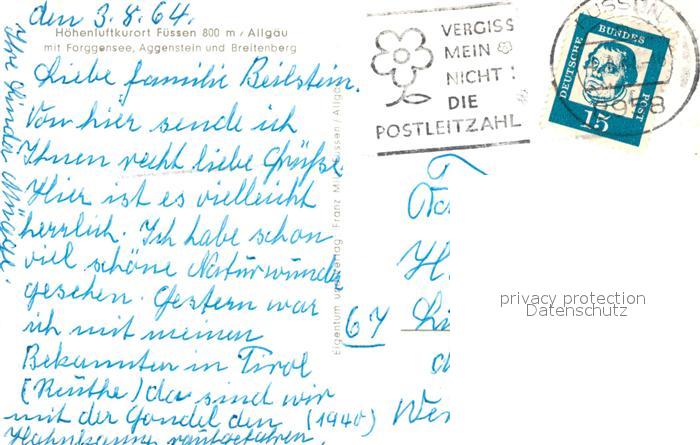 den 3.8.64.
Höhenluftkurort Füssen 800 m / Allgäu
mit Forggensee, Aggenstein und Breitenberg
Liebe Familie Beilstein.
Von hier sende ich
Ihnen recht liebe Grüße
Hier ist es vielleicht
herrlich. Ich habe schon
viel schöne Naturwunder
gesehen. Gestern war
ich mit meinen
Bekannten in Tirol
(Reuthe) da sind wir
mit der Gondel den (1940)
Hahnkamm raufgefahren.
Eigentum und Verlag Franz Füssen / Allgäu
VERGISS
MEIN
NICHT!
DIE
POSTLEITZAHL
FÜSSEN
8958
DEUTSCHE BUNDESPOST
15
67
privacy protection
Datenschutz